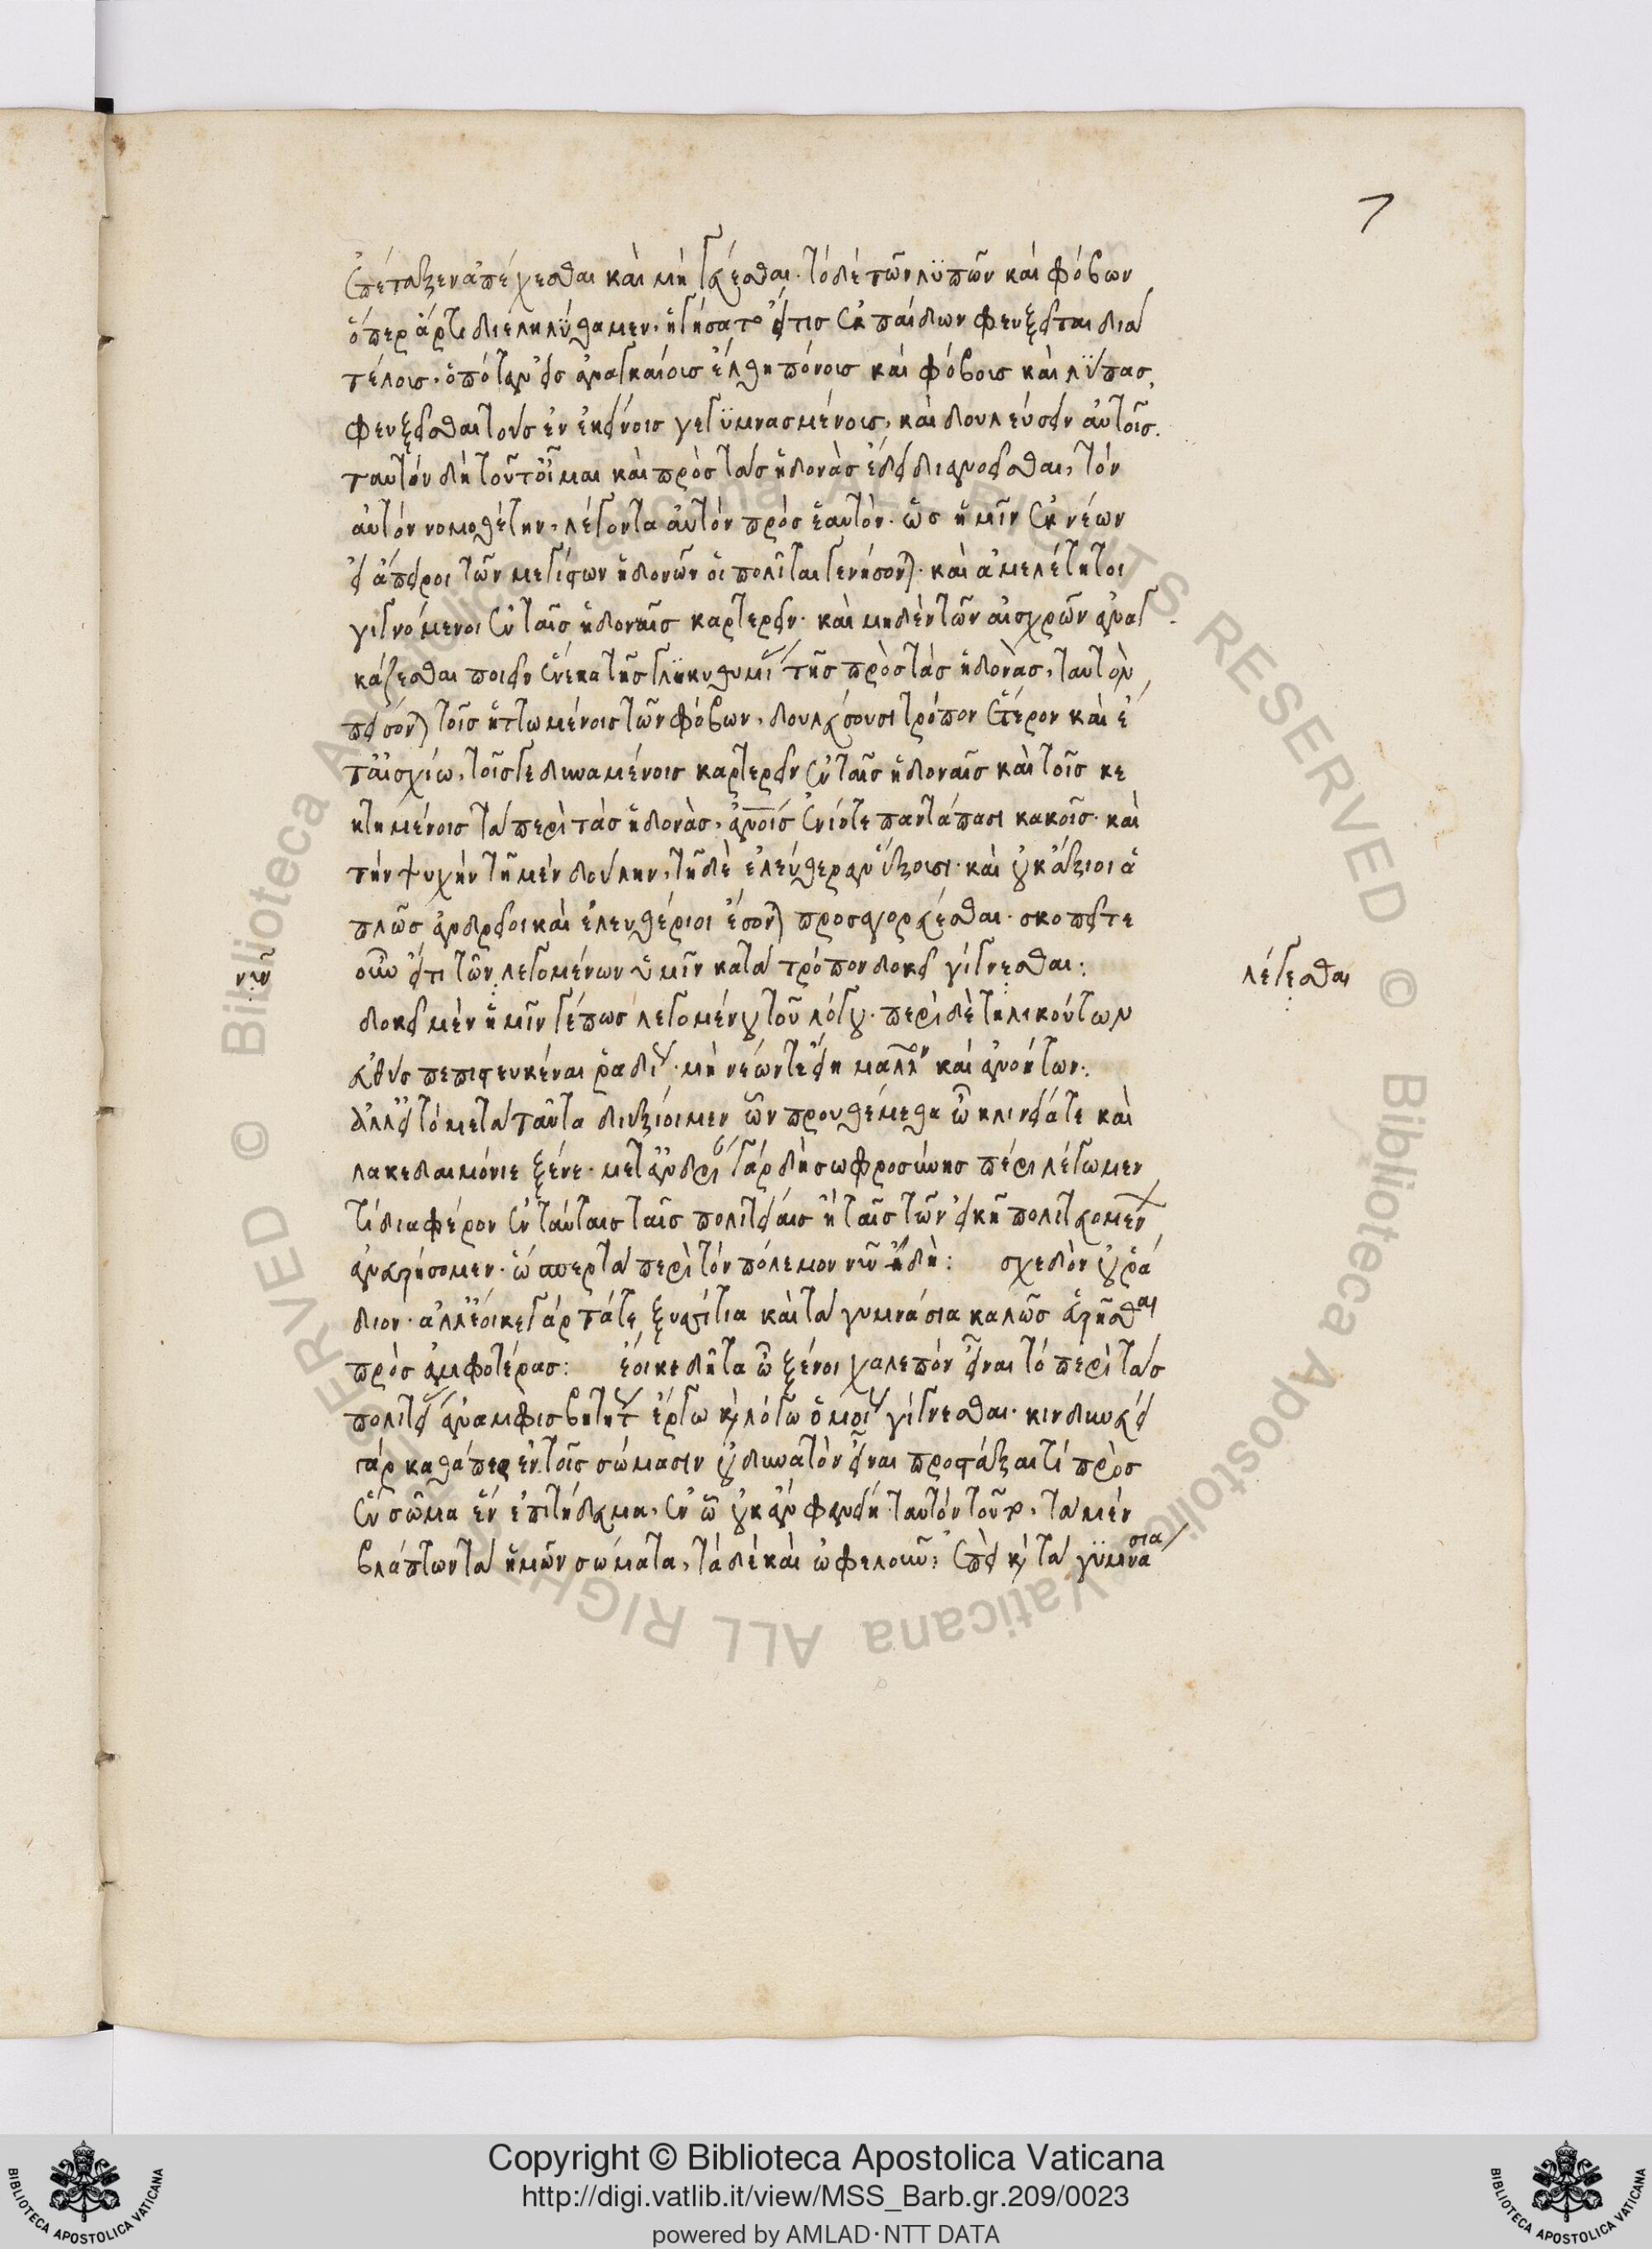 7
ἐπέταξεν ἀπέχεσθαι καὶ μὴ γεύεσθαι· τὸ δὲ τῶν λϋπῶν καὶ φόβων
ὅπερ ἄρτι διεληλύθαμεν, ἡγήσατο εἴτις ἐκ παίδων φευξεῖται διὰ
τέλους, ὁπόταν εἰς ἀναγκαίους ἔλθη πόνους καὶ φόβους καὶ λύπας,
φευξεῖσθαι τοὺς ἐν ἐκείνοις γεγϋμνασμένους, καὶ δουλεύσειν αὐτοῖς.
ταυτὸν δὴ τοῦτ' οἶμαι καὶ πρὸς τὰς ἡδονὰς ἔδει διανοεῖσθαι, τὸν
αὐτὸν νομοθέτην, λέγοντα αὐτὸν πρὸς ἑαυτὸν· ὡς ἡμῖν ἐκ νέων
εἰ ἄπειροι τῶν μεγίστων ἡδονῶν οἱ πολῖται γενήσονται· καὶ ἀμελέτητοι
γιγνόμενοι ἐν ταῖς ἡδοναῖς καρτερεῖν· καὶ μηδὲν τῶν αἰσχρῶν ἀναγ
κάζεσθαι ποιεῖν ἕνεκα τῆς γλυκυθυμίας τῆς πρὸς τὰς ἡδονὰς, ταυτὸν
πείσονται τοῖς ἡττωμένοις τῶν φόβων, δουλεύσουσι τρόπον ἕτερον καὶ ἔ
τ' αἰσχίω, τοῖς γε δυναμένοις καρτερεῖν ἐν ταῖς ἡδοναῖς καὶ τοῖς κε
κτημένοις τὰ περὶ τὰς ἡδονὰς, ἀνοίς ἐνίοτε παντάπασι κακοῖς· καὶ
τὴν ψυχὴν τῇ μὲν δούλην, τῇ δὲ ἐλευθέραν ἕξουσι· καὶ οὐκ ἄξιοι ἁ
πλῶς ἀνδρεῖοι καὶ ἐλευθέριοι ἔσονται προσαγορεύεσθαι· σκοπεῖτε
οὖν εἴτι τῶν λεγομένων ὑμῖν κατὰ τρόπον δοκεῖ γίγνεσθαι:
νῦν
λέγεσθαι
δοκεῖ μὲν ἡμῖν γέ πως λεγομένου τοῦ λόγου· περὶ δὲ τηλικούτων
εὐθὺς πεπιστευκέναι ῥαδίως· μὴ νέων τε εἴη μᾶλλον καὶ ἀνοήτων:
ἀλλ' εἰ τὸ μετὰ ταῦτα διεξίοιμεν ὧν προυθέμεθα ὦ κλεινία τε καὶ
λακεδαιμόνιε ξένε· μετ' ἀνδρίας γὰρ δὴ σωφροσύνης πέρι λέγωμεν
τί διαφέρον ἐν ταύταις ταῖς πολιτείαις ἢ ταῖς τῶν εἰκῇ πολιτευομένων
ἀνευρήσομεν· ὥσπερ τὰ περὶ τὸν πόλεμον νῦν ἤδη: σχεδὸν οὐ ῥά
διον· ἀλλ' ἔοικε γὰρ τά τε ξυσσίτια καὶ τὰ γυμνάσια καλῶς εὑρῆσθαι
πρὸς ἀμφοτέρας: ἔοικε δῆτα ὦ ξένοι χαλεπὸν εἶναι τὸ περὶ τὰς
πολιτείας ἀναμφισβητήτως ἔργω καὶ λόγω ὁμοίως γίγνεσθαι· κινδυνεύει
γὰρ καθάπερ ἐν τοῖς σώμασιν οὐ δυνατὸν εἶναι προστάξαι τί πρὸς
ἓν σῶμα ἓν ἐπιτήδευμα, ἐν ᾧ οὐκ ἂν φανείη ταυτὸν τοῦτο, τὰ μὲν
βλάπτων τὰ ἡμῶν σώματα, τὰ δὲ καὶ ὠφελοῦν: ἐπεὶ καὶ τὰ γϋμνάσια
© Biblioteca Apostolica Vaticana ALL RIGHTS RESERVED
Copyright © Biblioteca Apostolica Vaticana
http://digi.vatlib.it/view/MSS_Barb.gr.209/0023
powered by AMLAD·NTT DATA
BIBLIOTECA APOSTOLICA VATICANA
BIBLIOTECA APOSTOLICA VATICANA